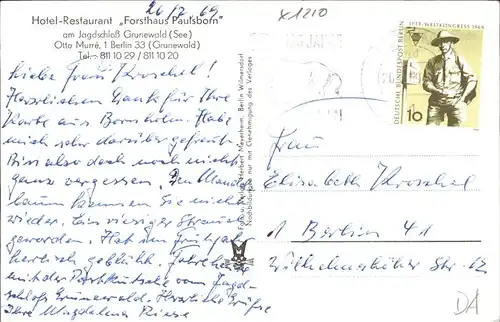 26/7 69
x1210
Hotel-Restaurant „Forsthaus Paulsborn"
am Jagdschloß Grunewald (See)
Otto Murré, 1 Berlin 33 (Grunewald)
Tel. 811 10 29 / 811 10 20
Liebe Frau Kroschel!
Herzlichen Dank für Ihre
Karte aus Bornholm. Habe
mich sehr darüber gefreut.
Bin also doch noch nicht
ganz vergessen. Den Mandel
baum kennen Sie nicht
wieder. Ein riesiger Strauch
geworden. Hat im Frühjahr
herrlich geblüht. Fahre heute
mit der Postkutsche vom Jagd-
schloß Grunewald. Herzliche Grüße
Ihre Magdalena
Foto u. Verlag Herbert Meyerheim, Berlin-Wilmersdorf
Nachbildung nur mit Genehmigung des Verlages
IPTT-WELTKONGRESS 1969
DEUTSCHE BUNDESPOST BERLIN
10
Frau
Elisabeth Kroschel
1 Berlin 41
Wilhelmshöher Str. 12
DA